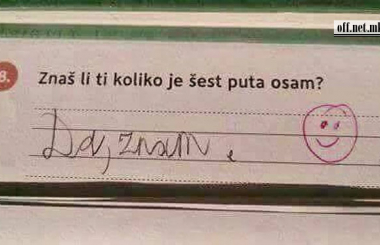 off.net.mk
8. Znaš li ti koliko je šest puta osam?
Da, znam.